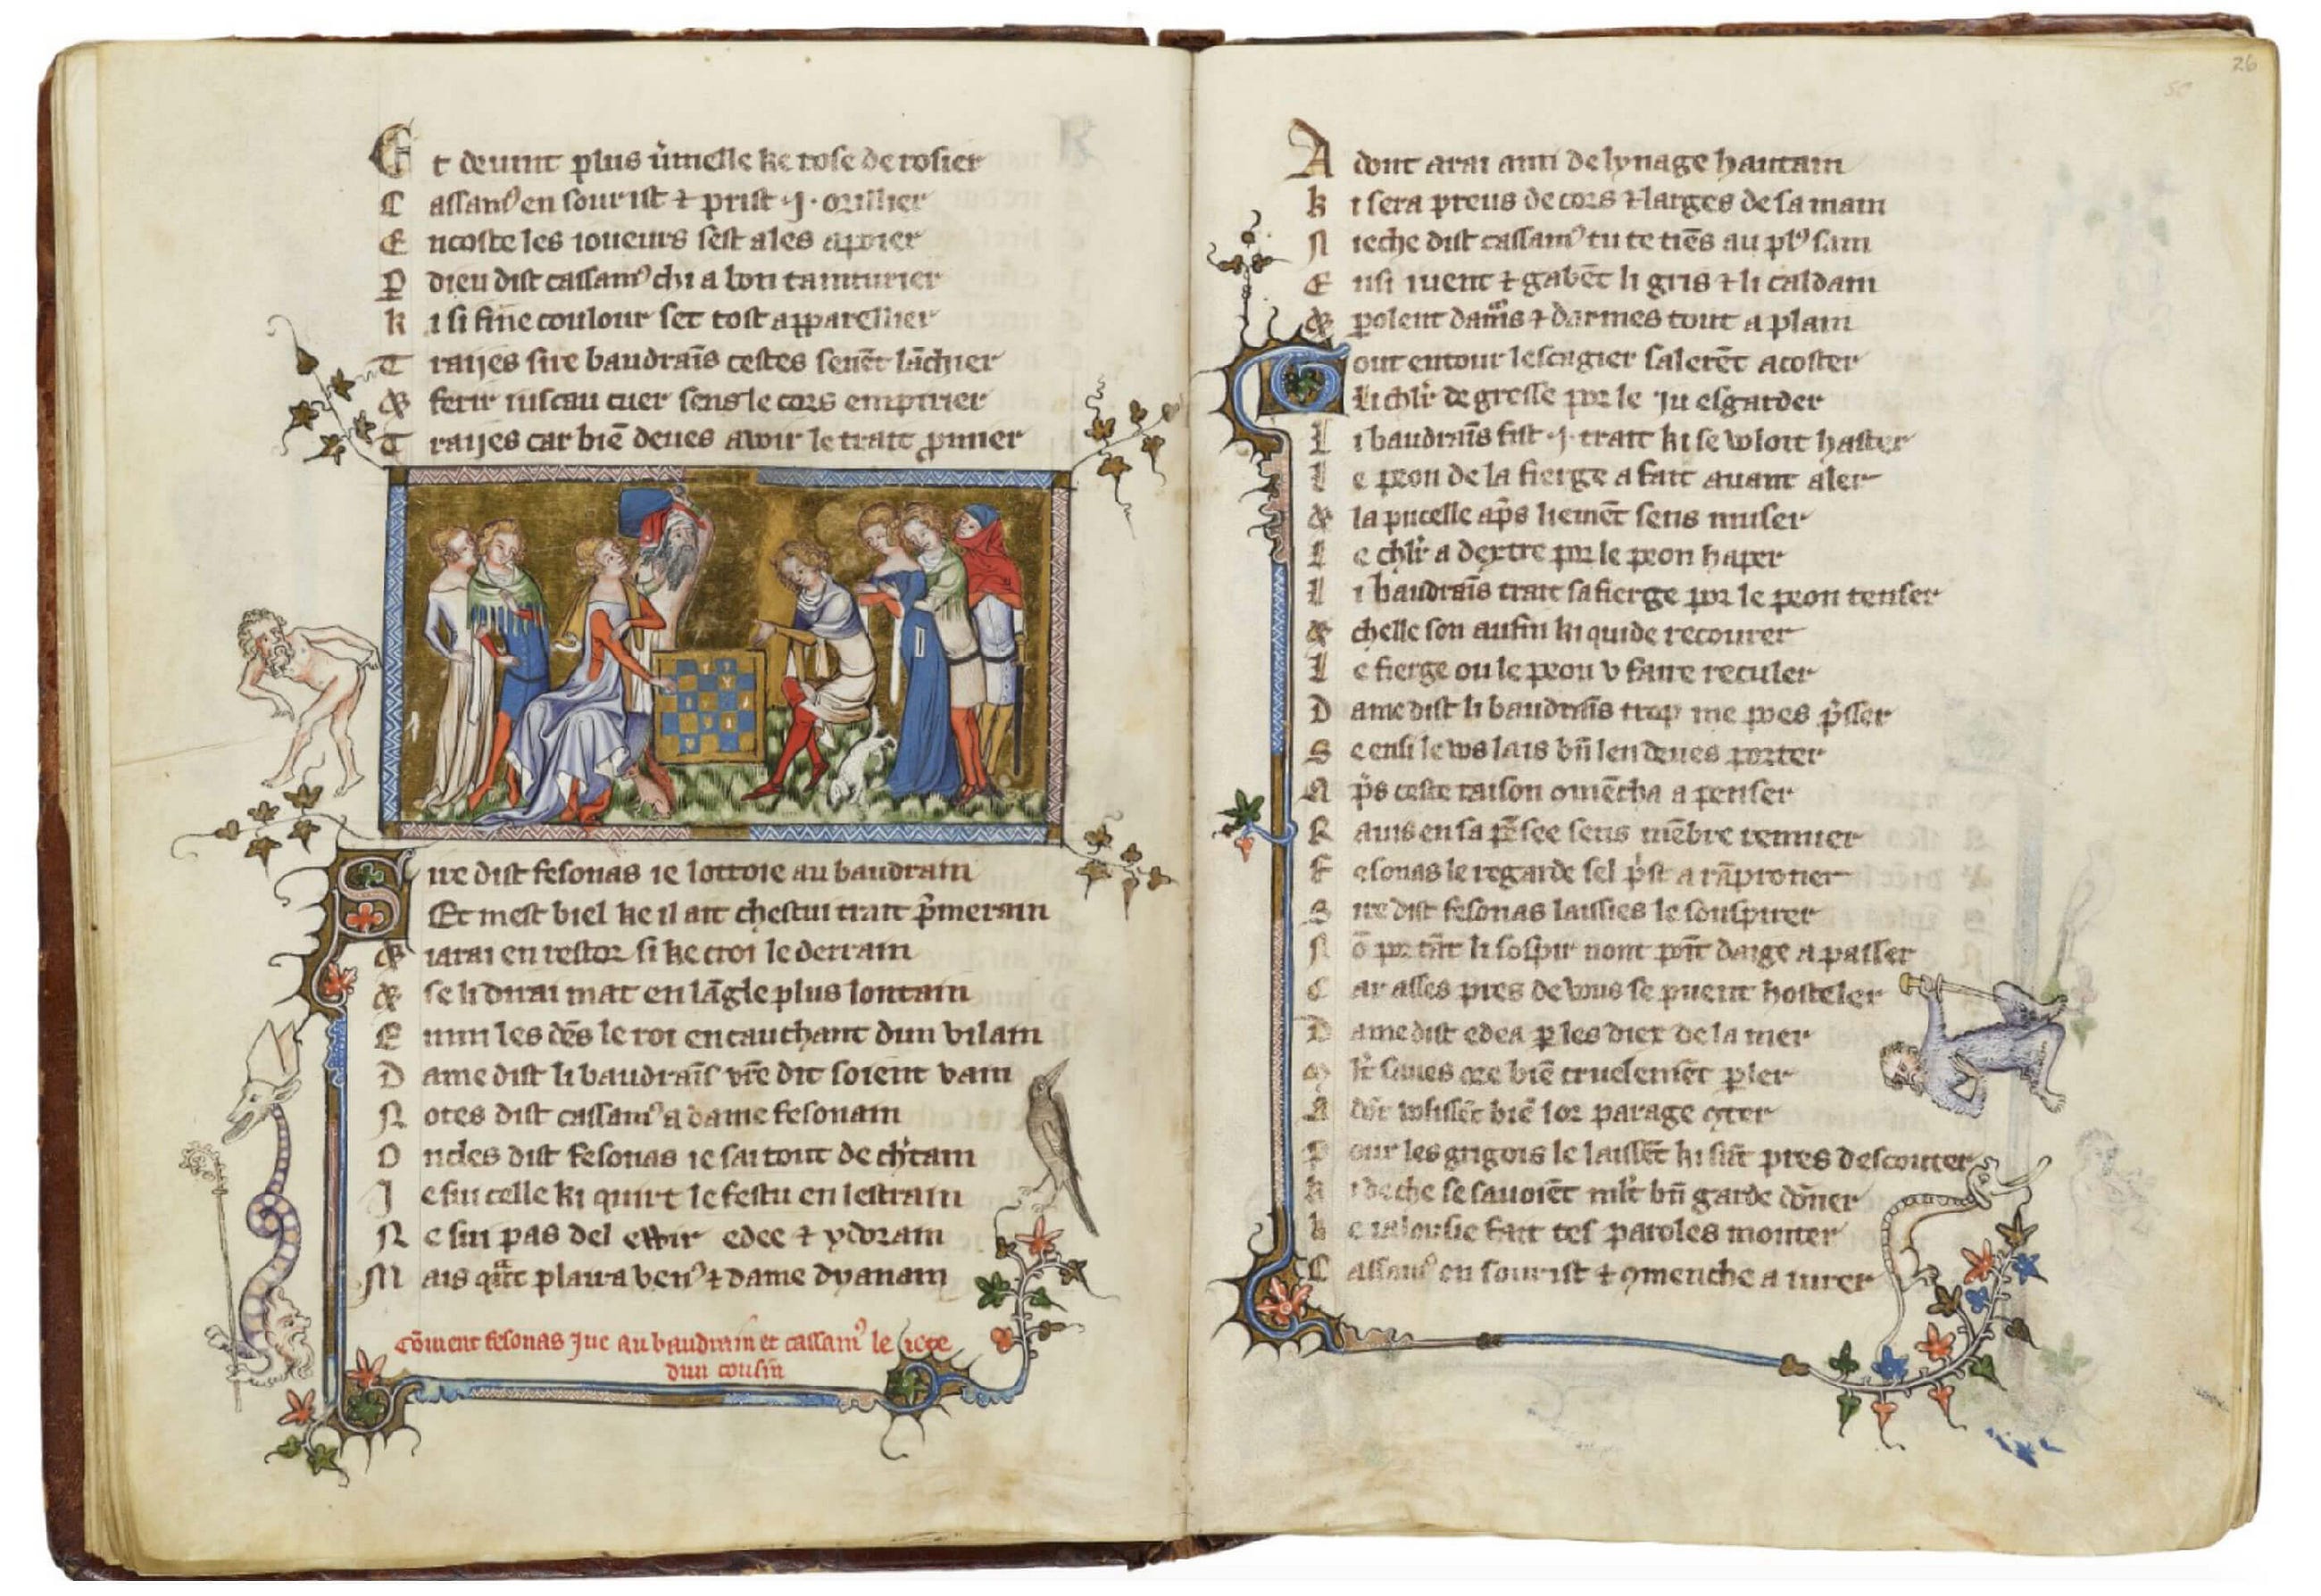 Et deuint plus v̾meille ke rose de rosier
Cassan⁹ en sourist ⁊ prist ·j· orillier
Encoste les ioueurs sest ales apoier
P̱ dieu dist cassam⁹ chi a bon tainturier
Ki si fine coulour set tost apparellier
Traijes sire baudrai̅s cestes seue̅t la̅chier
⁊ ferir iuscau cuer sens le cors empirier
Traijes car bie̅ deues awir le trait p̾mier
Sire dist fesonas ie lottroie au baudrain
Et mest biel ke il ait chestui trait p̾merain
⁊ iarai en restor si ke croi le derrain
⁊ se li dnrai mat en la̅gle plus lontain
Enmi les de̅s le roi encauchant dun vilain
Dame dist li baudrai̅s vr̅e dit soient vain
Notes dist cassam⁹ a dame fesonain
Oncles dist fesonas ie sai tout de ch̾tain
Je sui celle ki quirt le festu en lestrain
Ne sui pas del edee ⁊ ydorain
Mais qᵃ̅t plaira ven⁹ ⁊ dame dyanain
Co̅ment fesonas Jue au baudrain et cassam⁹ le
dun cousin
26
Adont arai ami de lynage hautain
Ki sera preus de cors ⁊ larges de sa main
Nieche dist cassam⁹ tu te tie̅s au pl⁹ sain
Ensi iuent ⁊ gabe̅t li gris ⁊ li caldain
⁊ ꝑolent damᵒ̅s ⁊ darmes tout a plain
Tout entour lescagier salere̅t acoster
Li chl̾r de gresse por le Ju esgarder
Li baudrai̅s fist ·j· trait ki se woloit haster
Le peon de la fierge a fait auant aler
⁊ la pucelle ap̾s liemẽt sens muser
Le chl̾r a dextre por le peon haper
Li baudrai̅s trait sa fierge por le peon tenser
⁊ chelle son aufin ki quide recourer
Le fierge ou le peon v faire reculer
Dame dist li baudrai̅s trop me poes p̾sser
Se ensi le wos lais bn̅ len deues porter
Ap̾s ceste raison ꝯmẽcha a penser
Rauis en sa pe̅see sens me̅bre remuer
Fesonas le regarde sel p̾st a ra̅proner
Sire dist fesonas laissies le souspirer
No̅ por ta̅t li sospir nont poi̅t daige a passer
Car asses pres de vous se puent hosteler
Dame dist edea ꝑ les diex de la mer
ml̾t saues ore bie̅ cruelemẽt ꝑler
bie̅ lor parage ꝯter
Pour les grigois le laisse̅t ki su̅t pres descouter
Ki de che se sauoie̅t ml̾t bn̅ garde do̅ner
Le ialousie fait tes paroles monter
Cassam⁹ en sourist ⁊ ꝯmenche a iurer